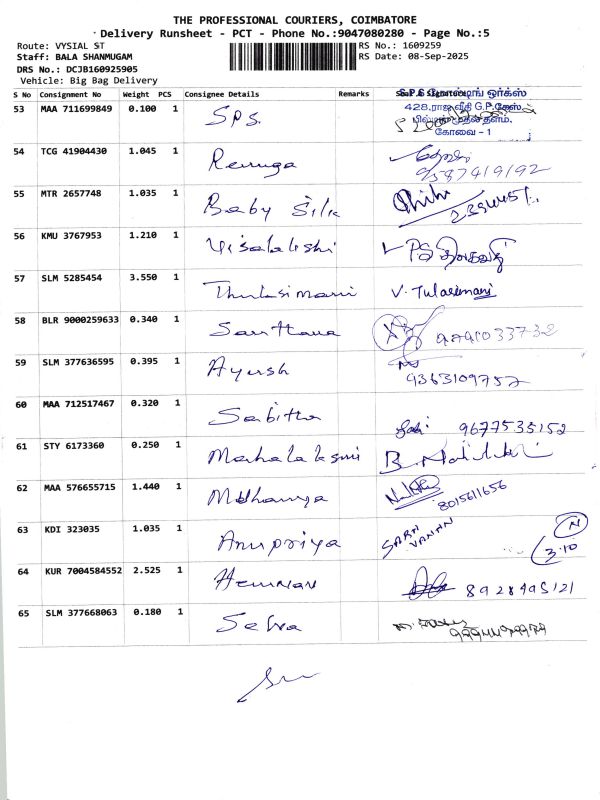 THE PROFESSIONAL COURIERS, COIMBATORE
Delivery Runsheet - PCT - Phone No.:9047080280 - Page No.:5
Route: VYSIAL ST RS No.: 1609259
Staff: BALA SHANMUGAM RS Date: 08-Sep-2025
DRS No.: DCJB160925905
Vehicle: Big Bag Delivery
S No Consignment No Weight PCS Consignee Details Remarks
428,ராஜ வீதி G.P.கேஸ்
கோவை - 1
53 MAA 711699849 0.100 1 SPS
54 TCG 41904430 1.045 1 Renuga
55 MTR 2657748 1.035 1 Baby Silk
56 KMU 3767953 1.210 1 Visalakshi
57 SLM 5285454 3.550 1 Thulasimani V. Tulasimani
58 BLR 9000259633 0.340 1 Santhana
59 SLM 377636595 0.395 1 Ayush 9363109752
60 MAA 712517467 0.320 1 Sabitha 9677535152
61 STY 6173360 0.250 1 Mahalaksmi
62 MAA 576655715 1.440 1 8015611656
63 KDI 323035 1.035 1 Anupriya SARA VANAN N 3.10
64 KUR 7004584552 2.525 1 8928495121
65 SLM 377668063 0.180 1 Selva